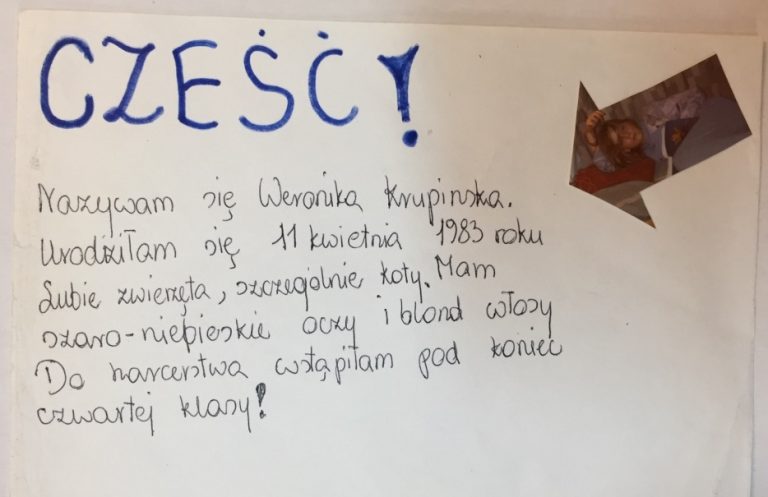 CZEŚĆ!
Nazywam się Weronika Krupinska.
Urodziłam się 11 kwietnia 1983 roku
Lubię zwierzęta, szczególnie koty. Mam
szaro-niebieskie oczy i blond włosy
Do harcerstwa wstąpiłam pod koniec
czwartej klasy!